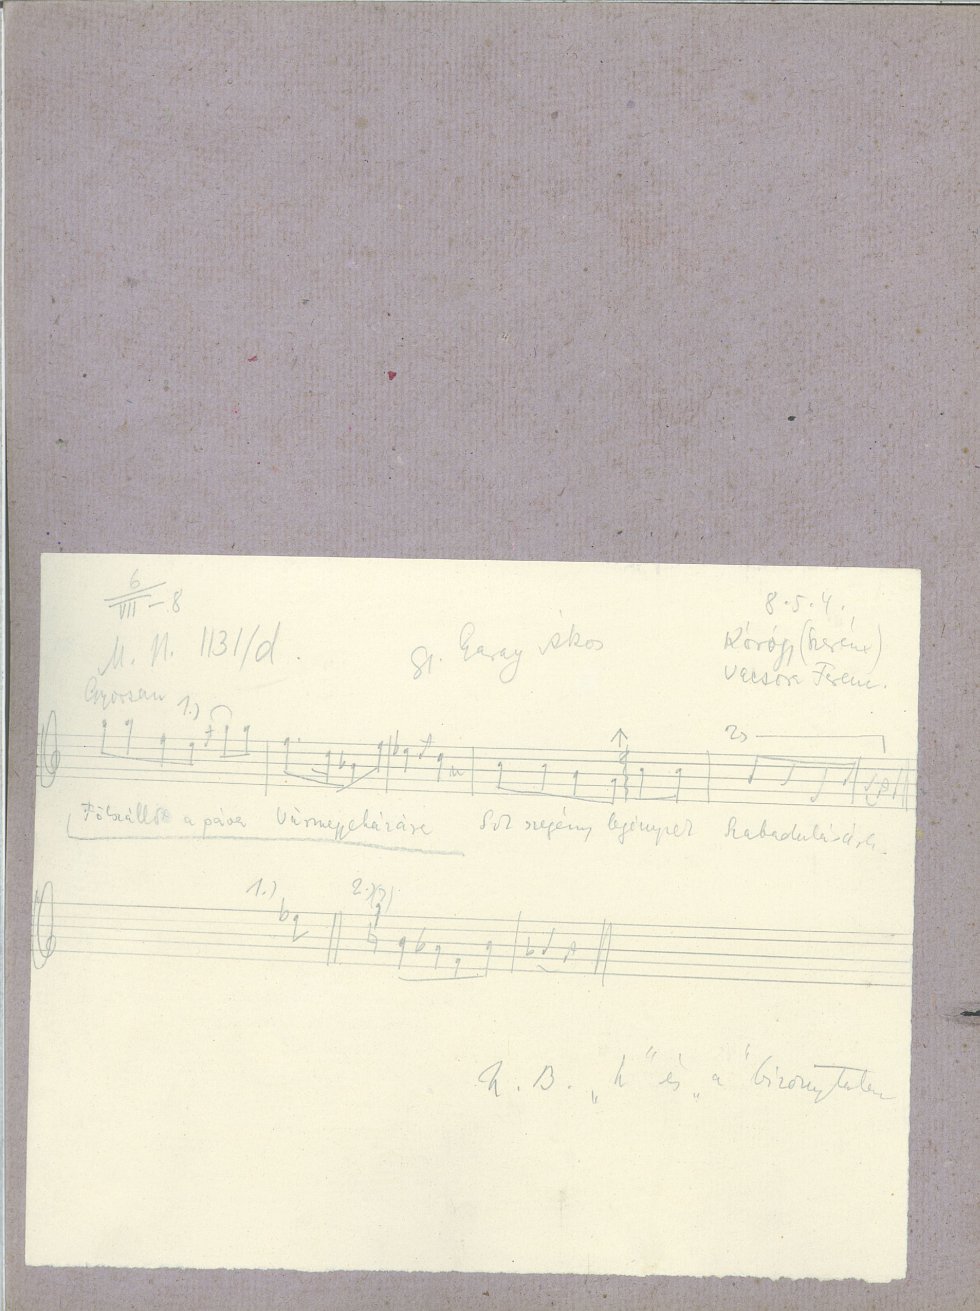 6
VII - 8
8.5.4.
M. N. 1131/d.
gy. Garay Ákos
Kórógy (Szerém)
Vacsora Ferenc.
Gyorsan
1.)
2)
Fölszállott a páva Vármegyeházára Sok szegény legénynek Szabadulására.
1.)
2.)
N. B. „h" és „a" bizonytalan